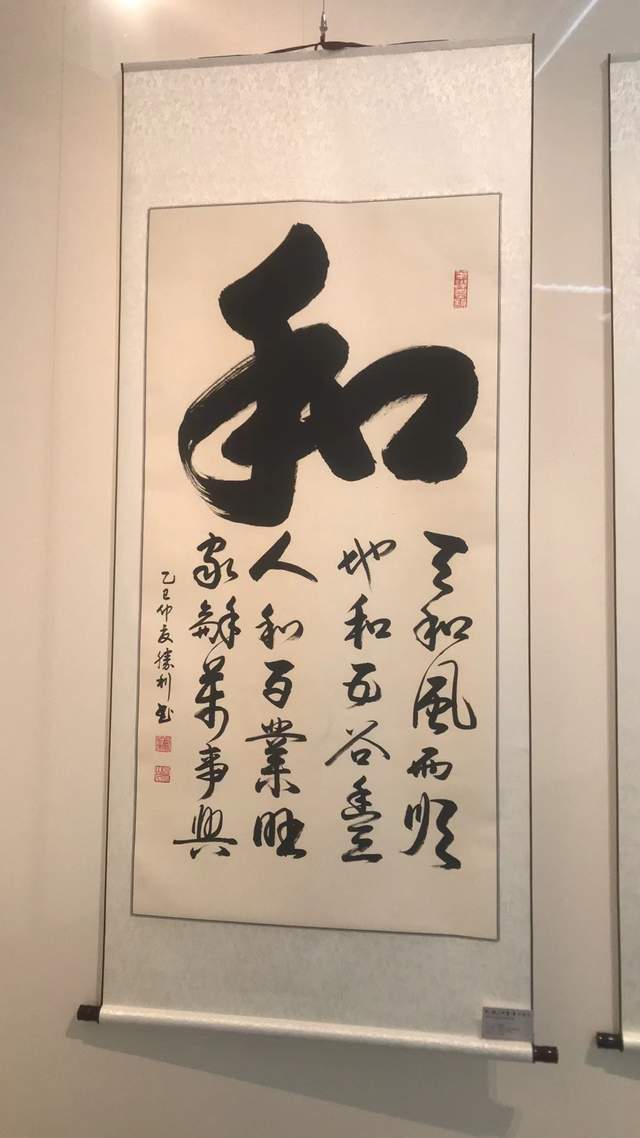 和
天和風雨順
地和五谷豐
人和百業旺
家龢萬事興
乙巳仲夏勝利書